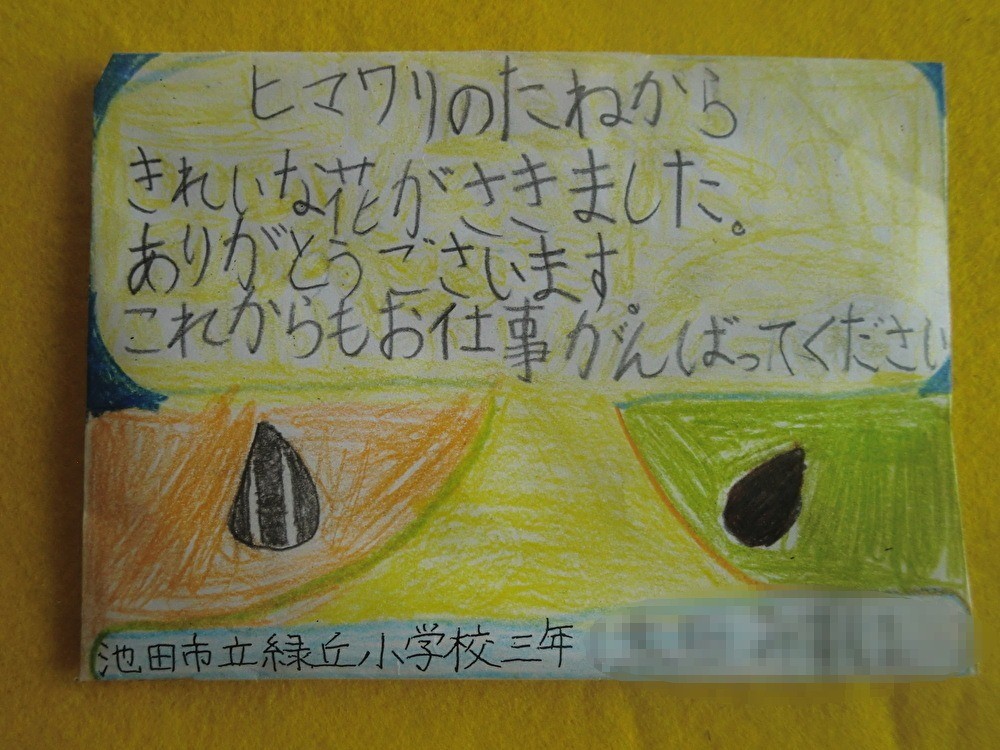 ヒマワリのたねから
きれいな花がさきました。
ありがとうございます。
これからもお仕事がんばってください
池田市立緑丘小学校三年